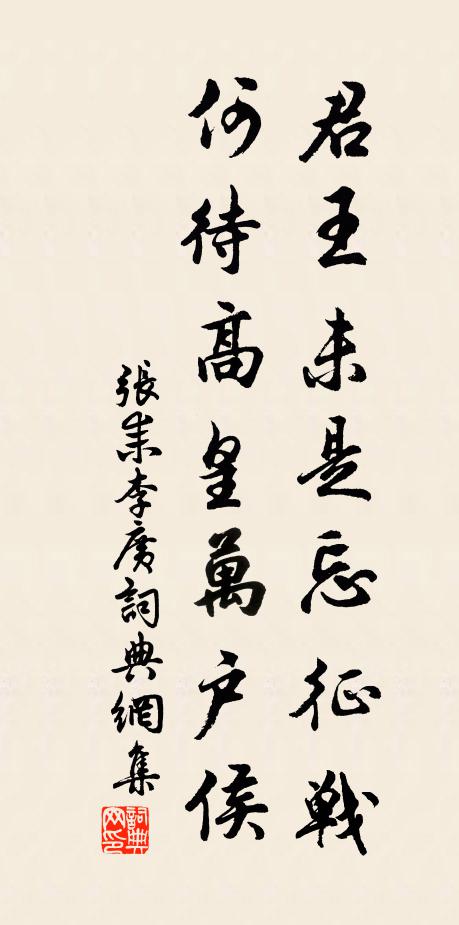 君王未是忘征戰
何待高皇萬户侯
張耒李廣詞典網集
詞典網印